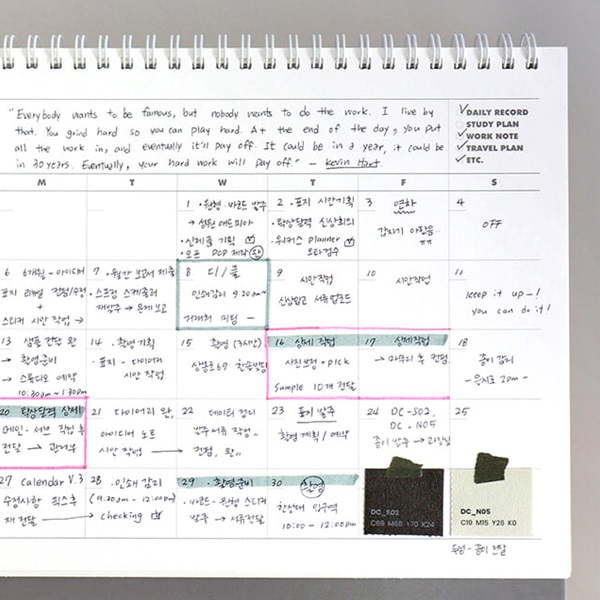 "Everybody wants to be famous, but nobody wants to do the work. I live by
that. You grind hard so you can play hard. At the end of the day, you put
all the work in, and eventually it'll pay off. It could be in a year, it could be
in 30 years. Eventually, your hard work will pay off." - Kevin Hart.
DAILY RECORD
STUDY PLAN
WORK NOTE
TRAVEL PLAN
ETC.
M T W T F S
1 ·원형·바코드 발주
·신제품 기획
·오프 POP 제작 완
2 ·표지 시안기획
·탁상달력 신상회의
·워커스 planner
오타검수
3 연차
갑자기 아팠음
ㅠㅠ
4
OFF
6 6개월 - 아이디어
표지 리뉴얼 컨펌/수정
스티커 시안 작업 →
7 ·월간 보고서 제출
·스프링 스케줄러
재발주 → 문제 보고
8 디//플
인쇄감리 9:30am~
9 시안작업
신상입고 서류업로드
10 시안작업
11
keep it up-!
you can do it!
13 샘플 전달 완
→ 촬영준비
→ 스튜디오 예약
10:30am~1:30pm
14 ·촬영 기획
·표지 - 다이어리
시안 작업
15 촬영 (3시간)
16 상세 작업
사진보정 + pick
Sample 10개 전달
17 상세작업
→ 마무리 후 컨펌
18
종이 감리
20 탁상달력 상세
메인·서브 작업 후
전달 →
21 다이어리 완,
아이디어 노트
시안 작업 →
22 데이터 정리
발주서류 작성..
컨펌, 완..
23 표지 발주
촬영 계획 / 예약
24 DC-S02,
DC-N05
종이 발주 →
25
27 Calendar V.3
수정사항 픽스 후
재 전달 →
28 ·인쇄 감리
(9:30am - 12:00pm)
→ checking
29 ·촬영준비
·바코드·원형 스티커
발주 → 서류전달
30 촬영
한성대 입구역
10:00 - 12:00pm
DC_S02
C66 M66 Y70 K24
DC_N05
C19 M15 Y26 K0